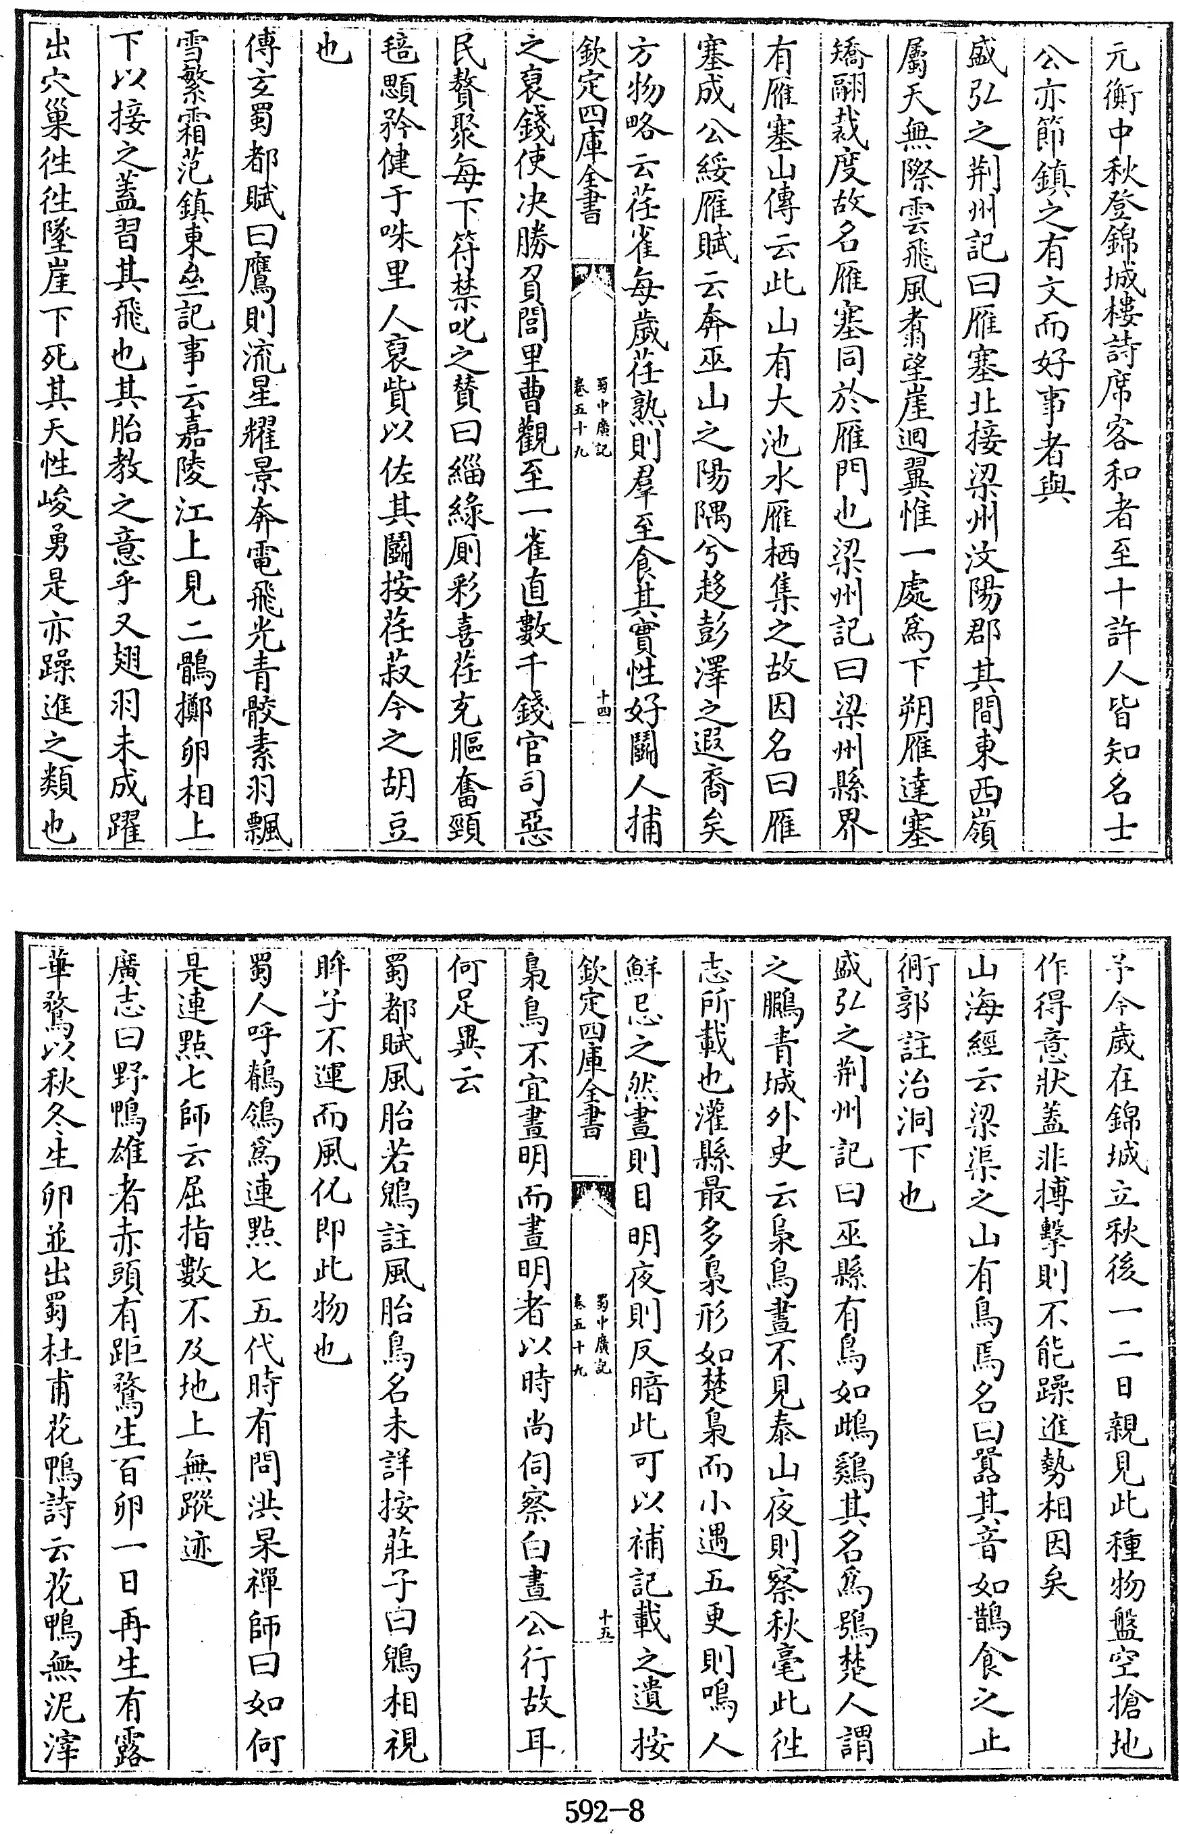 元衡中秋登錦城樓詩席客和者至十許人皆知名士
公亦節鎮之有文而好事者與
盛弘之荆州記曰雁塞北接梁州汶陽郡其間東西嶺
屬天無際雲飛風翥望崖迴翼惟一處為下朔雁達塞
矯翮裁度故名雁塞同於雁門也梁州記曰梁州縣界
有雁塞山傳云此山有大池水雁栖集之故因名曰雁
塞成公綏雁賦云奔巫山之陽隅兮趍彭澤之遐裔矣
方物略云荏雀每歲荏熟則羣至食其實性好鬭人捕
欽定四庫全書
蜀中廣記
卷五十九
十四
之裒錢使决勝負閭里曹觀至一雀直數千錢官司惡
民贅聚每下符禁叱之賛曰緇緣厠彩喜荏充膃奮頸
毰顋矜健于咮里人裒貲以佐其鬭按荏菽今之胡豆
也
傅玄蜀都賦曰鷹則流星耀景奔電飛光青骹素羽飄
雪繁霜范鎮東坐記事云嘉陵江上見二鶻擲卵相上
下以接之蓋習其飛也其胎教之意乎又翅羽未成躍
出穴巢徃徃墜崖下死其天性峻勇是亦躁進之類也
予今歲在錦城立秋後一二日親見此種物盤空搶地
作得意狀蓋非搏擊則不能躁進勢相因矣
山海經云梁渠之山有鳥焉名曰嚻其音如鵲食之止
衕郭註治洞下也
盛弘之荆州記曰巫縣有鳥如雌鷄其名為鴞楚人謂
之鵩青城外史云梟鳥晝不見泰山夜則察秋毫此徃
志所載也灌縣最多梟形如楚梟而小遇五更則鳴人
鮮忌之然晝則目明夜則反暗此可以補記載之遺按
欽定四庫全書
蜀中廣記
卷五十九
十五
梟鳥不宜晝明而晝明者以時尚伺察白晝公行故耳
何足異云
蜀都賦風胎若鶂註風胎鳥名未詳按莊子白鶂相視
眸子不運而風化即此物也
蜀人呼鶺鴒為連點七五代時有問洪杲禪師曰如何
是連點七師云屈指數不及地上無蹤迹
廣志曰野鴨雄者赤頭有距鶩生百卵一日再生有露
華鶩以秋冬生卵並出蜀杜甫花鴨詩云花鴨無泥滓
592-8